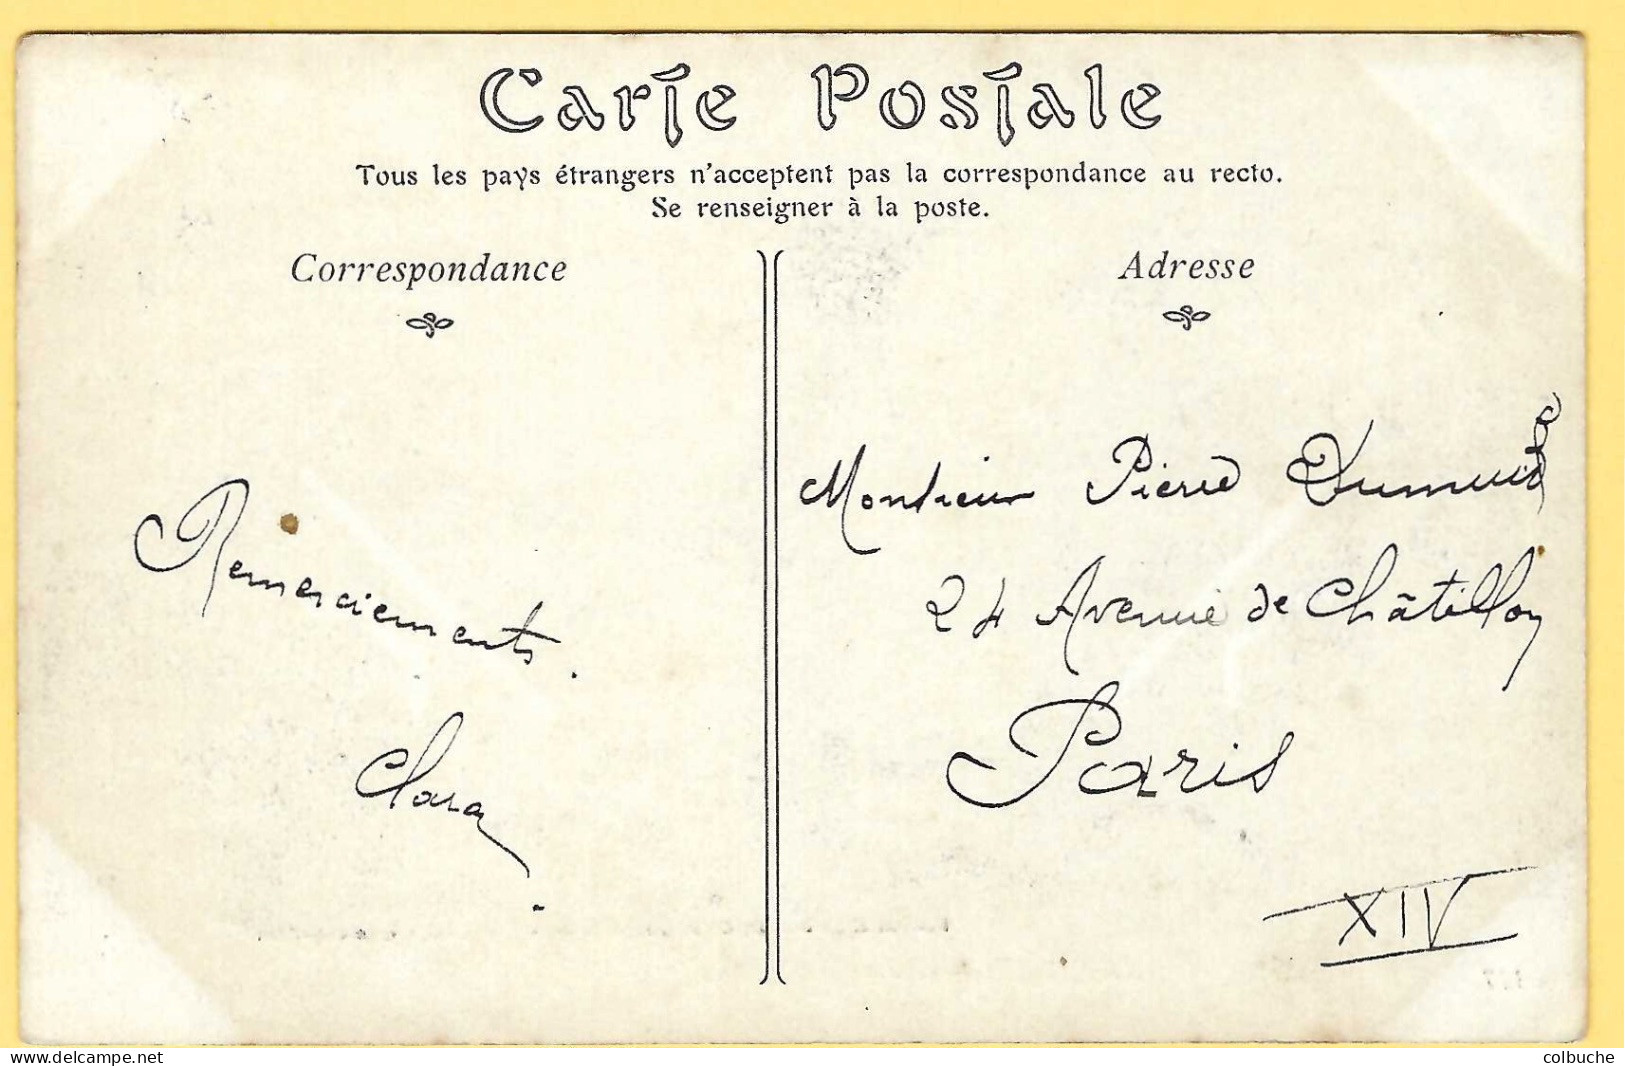 Carte Postale
Tous les pays étrangers n'acceptent pas la correspondance au recto.
Se renseigner à la poste.
Correspondance
Remerciements.
Clara.
Adresse
Monsieur Pierre
24 Avenue de Châtillon
Paris
XIV
www.delcampe.net
colbuche